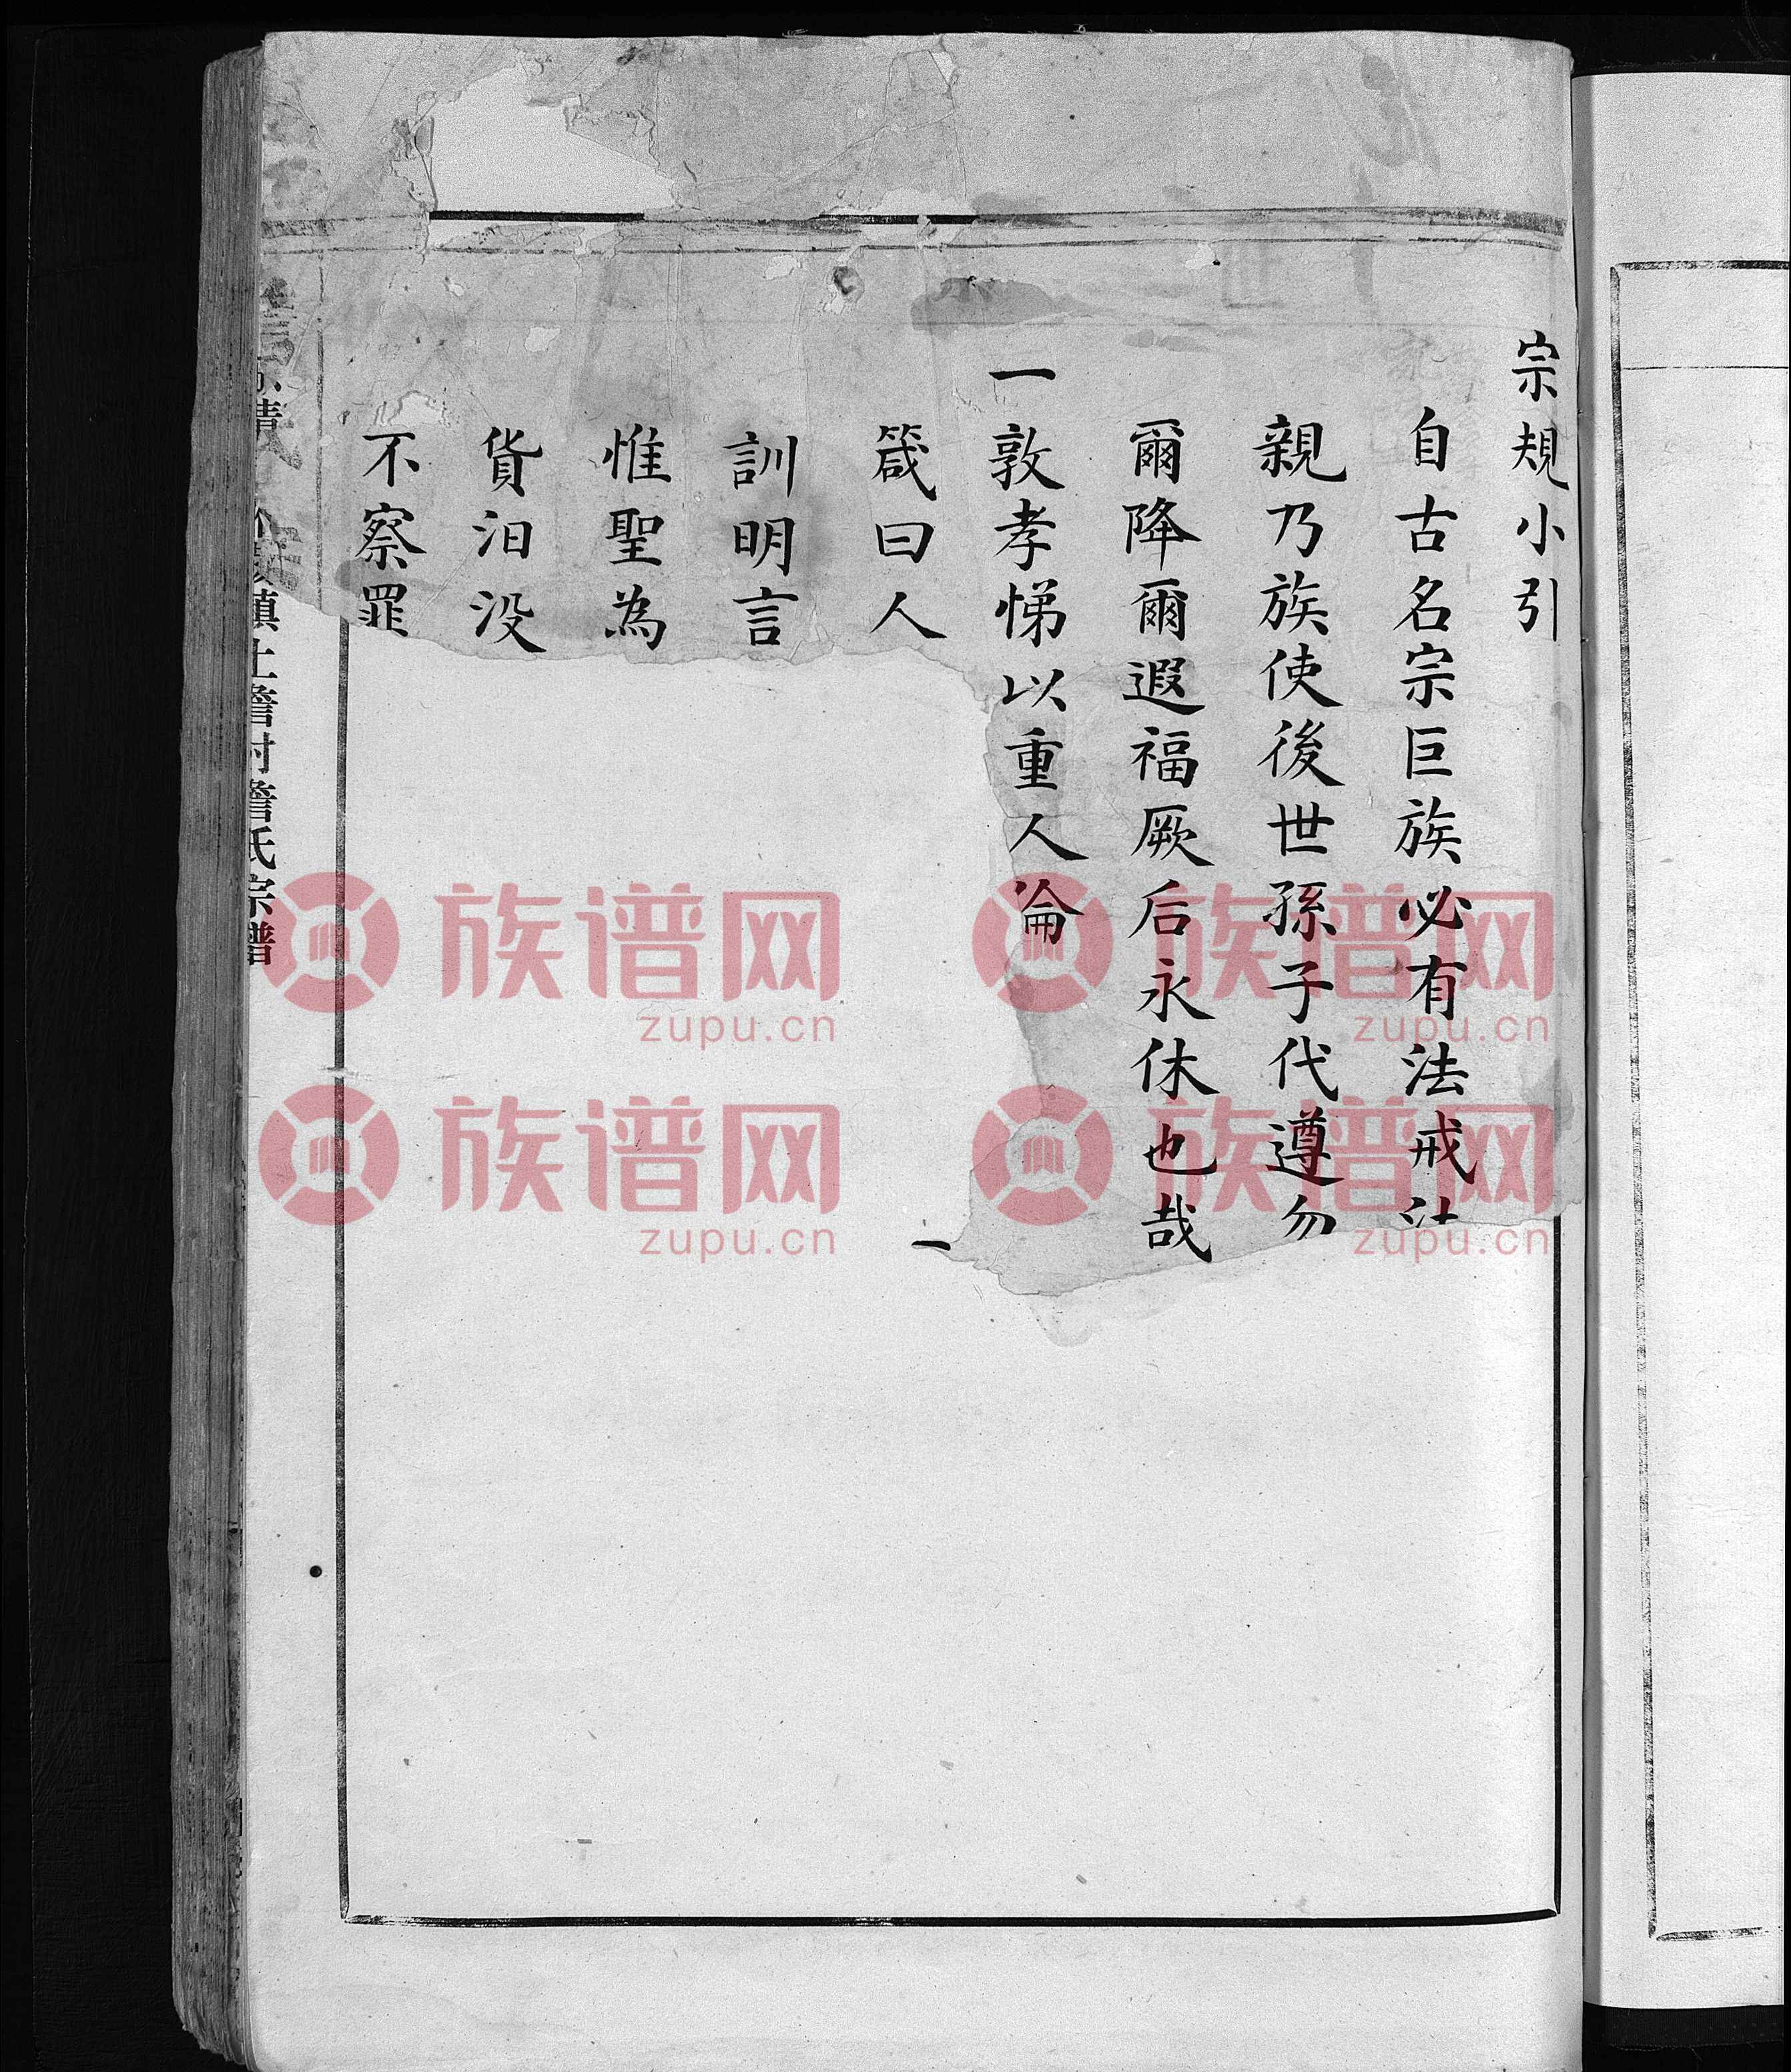 宗規小引
自古名宗巨族必有法戒
親乃族使後世孫子代遵勿
爾降爾遐福厥后永休也哉
一敦孝悌以重人倫
箴曰人
訓明言
惟聖為
貨汩没
不察罪
一
鎮上詹村詹氏宗譜
族谱网
zupu.cn
族谱网
zupu.cn
族谱网
zupu.cn
族谱网
zupu.cn